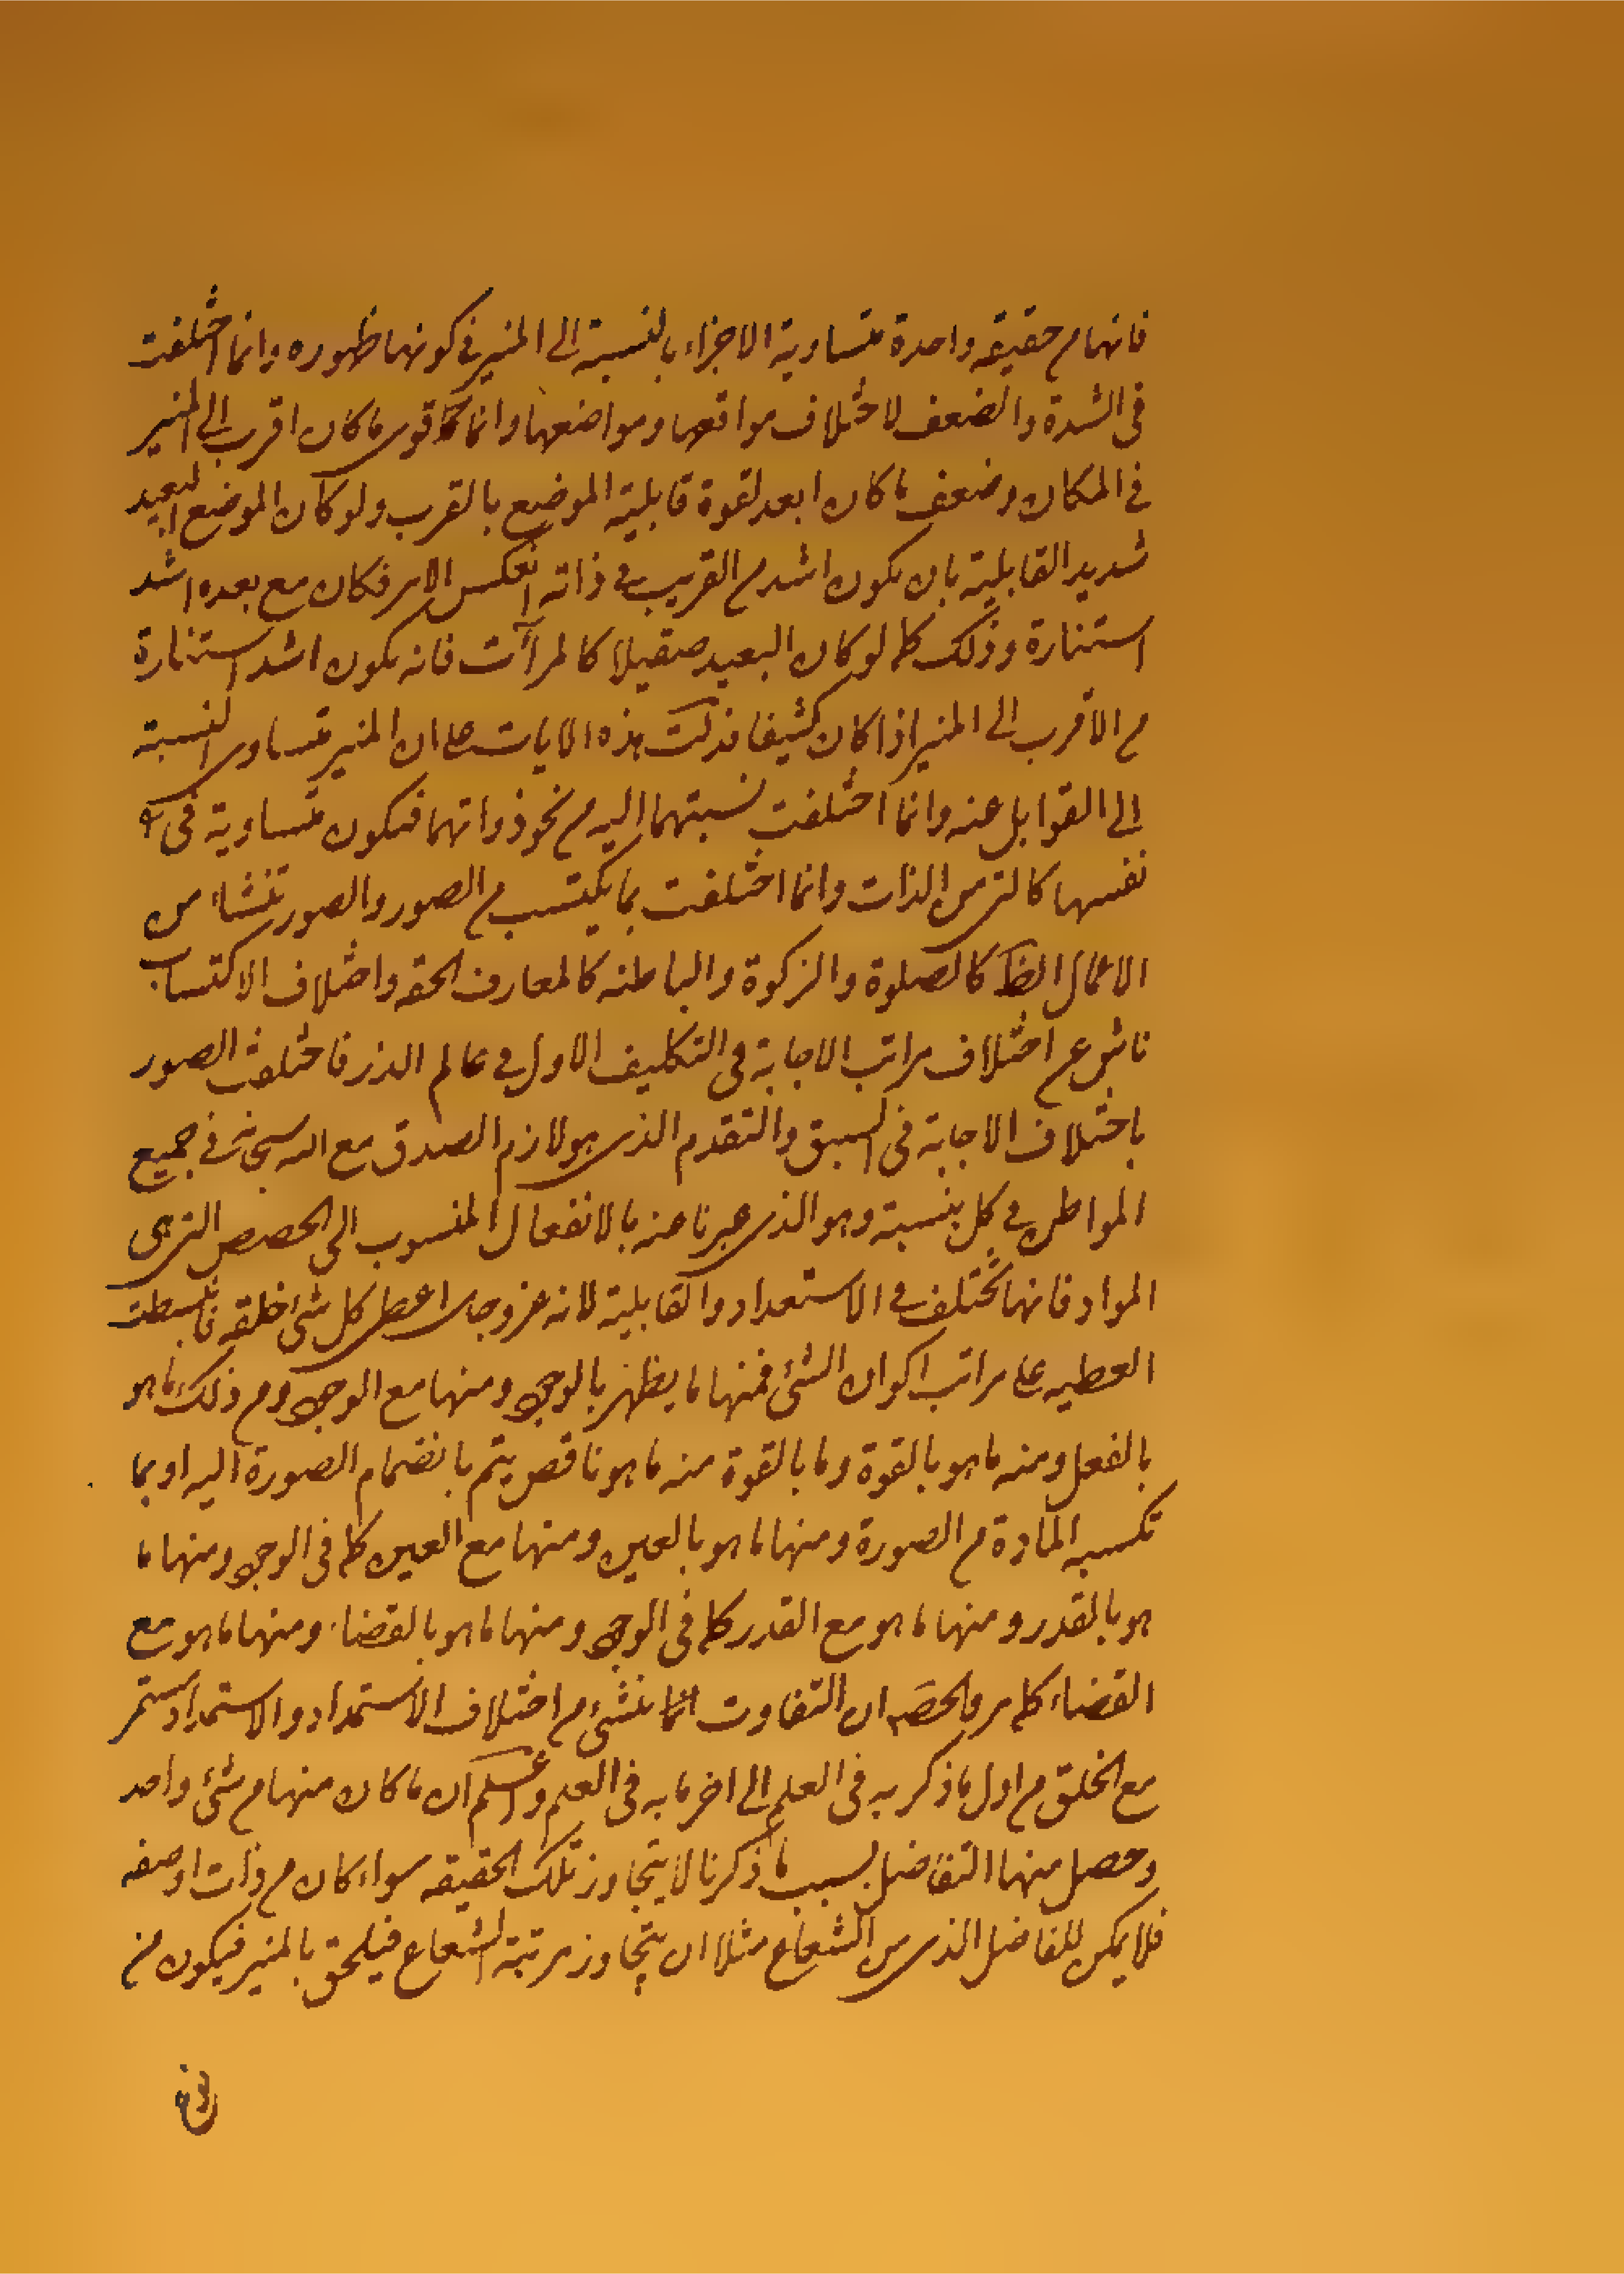 فانها م حقيقه واحدة متساوية الاجزاء بالنسبة الى المنير فى كونها ظهوره وانما اختلفت
فى الشدة والضعف لاختلاف مواقعها ومواضعها وانما قوى ما كان اقرب الى المنير
فى المكان وضعف ما كان ابعد لقوة قابلية الموضع بالقرب ولو كان الموضع البعيد
شديد القابلية بان يكون اشد م القريب فى ذاته انعكس الامر فكان مع بعده اشد
استنارة وذلك كما لو كان البعيد صقيلا كالمرآت فانه يكون اشد استنارة
م الاقرب الى المنير اذا كان كثيفا فدلت هذه الايات على ان المنير متساوى النسبة
الى القوابل عنه وانما اختلفت نسبتهما اليه م نحو ذواتهما فتكون متساوية فى
نفسها كالتى من الذات وانما اختلفت بما يكتسب م الصور والصور تنشاء من
الاعمال الظ كالصلوة والزكوة والباطنه كالمعارف الحقه واختلاف الاكتساب
ناش ع اختلاف مراتب الاجابة فى التكليف الاول فى عالم الذر فاختلفت الصور
باختلاف الاجابة فى السبق والتقدم الذى هو لازم الصدق مع الله سبحانه فى جميع
المواطن فى كل بنسبة وهو الذى عبرنا عنه بالانفعال المنسوب الى الحصص التى هى
المواد فانها تختلف فى الاستعداد والقابلية لانه عز وجل اعطى كل شئ خلقه فانبسطت
العطيه على مراتب اكوان الشئ فمنها ما يظهر بالوجو ومنها مع الوجو وم ذلك ما هو
بالفعل ومنه ما هو بالقوة وما بالقوة منه ما هو ناقص يتم بانضمام الصورة اليه او بما
تكسبه المادة م الصورة ومنها ما هو بالعين ومنها مع العين كما فى الوجو ومنها ما
هو بالقدر ومنها ما هو مع القدر كما فى الوجو ومنها ما هو بالقضاء ومنها ما هو مع
القضاء كما مر والحصه ان التفاوت انما ينشئ م اختلاف الاستمداد والاستمداد مستمر
مع الخلق م اول ما ذكر به فى العلم الى اخر ما به فى العلم واعلم ان ما كان منها م شئ واحد
وحصل منها التفاضل بسبب ما ذكرنا لا يتجاوز تلك الحقيقه سواء كان م ذات او صفه
فلا يمكن للفاضل الذى من الشعاع مثلا ان يتجاوز مرتبة الشعاع فيلحق بالمنير فيكون م